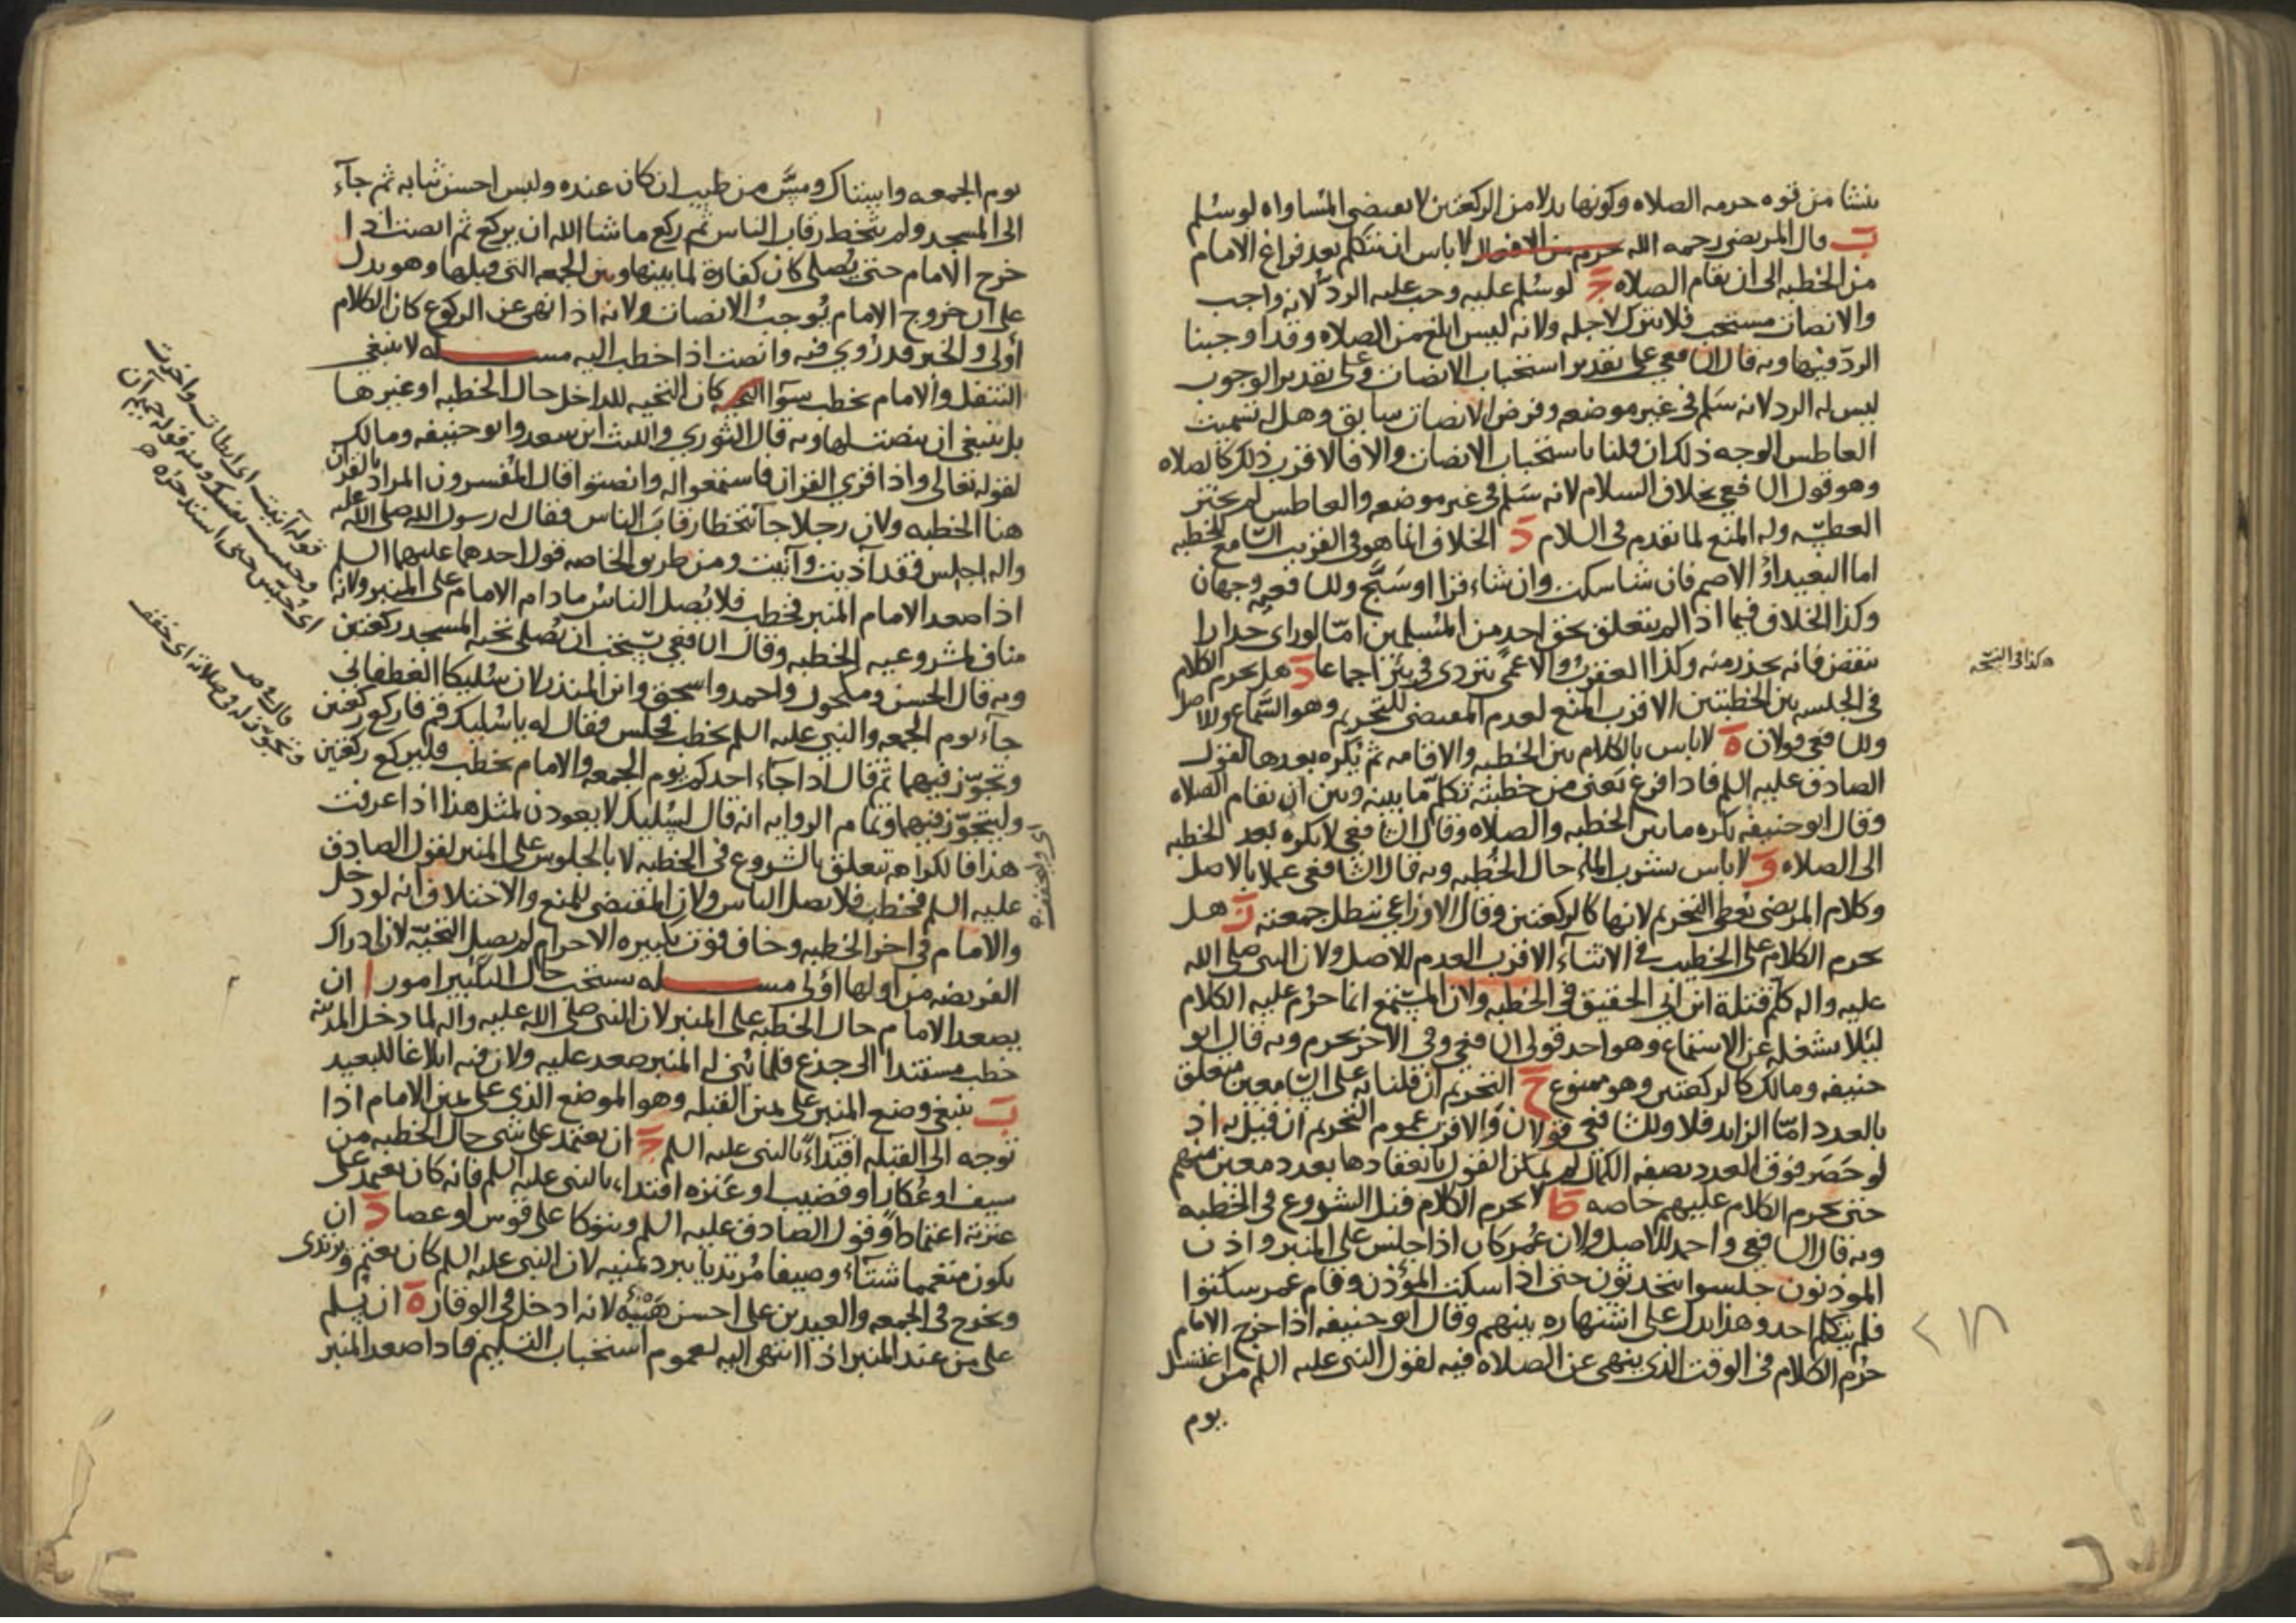 ينشا من قوه حرمه الصلاه وكونها بدلا من الركعتين لا يقتضي المساواه لو سلم
ب قال المرتضى رحمه الله لا باس ان يتكلم بعد فراغ الامام
من الخطبه الى ان تقام الصلاه ج لو سُلم عليه وجب عليه الرد لانه واجب
والانصات مستحب فلا يترك لاجله ولانه ليس ابلغ من الصلاه وقد اوجبنا
الردّ فيها وبه قال الشافعي على تقدير استحباب الانصات وعلى تقدير الوجوب
ليس له الرد لانه سَلم في غير موضعه وفرض الانصات سابق وهل له تسميت
العاطس الوجه ذلك ان قلنا باستحباب الانصات والا فالاقرب ذلك كالصلاه
وهو قول الشافعي بخلاف السلام لانه سَلم في غير موضعه والعاطس لم يختر
العطسه وله المنع لما تقدم في السلام د الخلاف انما هو في القريب السامع للخطبه
اما البعيد او الاصم فان شا سكت وان شاء قرا او سَبَّح وللشافعيه وجهان
وكذا الخلاف فيما اذا لم يتعلق بحق احد من المسلمين امّا لو راى جدارا
ينقض فانه يحذر منه وكذا العقرب والاعمى يتردى في بئر اجماعا د هل يحرم الكلام
في الجلسه بين الخطبتين الاقرب المنع لعدم المقتضي للتحريم وهو السَّماع وللاصل
وللشافعي قولان ه لا باس بالكلام بين الخطبه والاقامه ثم يكره بعدها لقول
الصادق عليه السلم فاذا فرغ يعنى من خطبته تكلّم ما بينه وبين ان تقام الصلاه
وقال ابو حنيفه يكره ما بين الخطبه والصلاه وقال الشافعي لا يكره بعد الخطبه
الى الصلاه و لا باس بشرب الماء حال الخطبه وبه قال الشافعي عملا بالاصل
وكلام المرتضى يُعطي التحريم لانها كالركعتين وقال الاوزاعي تبطل جمعته ز هل
يحرم الكلام على الخطيب في الاثناء الاقرب العدم للاصل ولان النبي صلى الله
عليه واله كلّم قتلة ابن ابي الحقيق في الخطبه ولان المستمع انما حرُم عليه الكلام
لئلا يشغله عن الاستماع وهو احد قولي الشافعي وفي الاخر يحرم وبه قال ابو
حنيفه ومالك كالركعتين وهو ممنوع ح التحريم ان قلنا به على السامعين متعلق
بالعدد امّا الزايد فلا وللشافعي قولان والاقرب عموم التحريم ان قيل به اذ
لو حَضَر فوق العدد بصفه الكمال لم يمكن القول بانعقادها بعدد معين منهم
حتى يحرم الكلام عليهم خاصه ط لا يحرم الكلام قبل الشروع في الخطبه
وبه قال الشافعي واحمد للاصل ولان عُمر كان اذا جلس على المنبر واذن
الموذنون جلسوا يتحدثون حتى اذا سكت المؤذن وقام عمر سكتوا
فلم يتكلم احد وهذا يدل على اشتهاره بينهم وقال ابو حنيفه اذا خرج الامام
حرُم الكلام في الوقت الذي ينهى عن الصلاه فيه لقول النبي عليه السلم من اغتسل
يوم
هكذا في النسخه
٢١٨
يوم الجمعه واستاك ومسَّ من طيب ان كان عنده ولبس احسن ثيابه ثم جآء
الى المسجد ولم يتخط رقاب الناس ثم ركع ما شا الله ان يركع ثم انصت اذا
خرج الامام حتى يُصلي كان كفارة لما بينها وبين الجمعه التي قبلها وهو يدل
على ان خروج الامام يُوجبُ الانصات ولانه اذا نهى عن الركوع كان الكلام
أولى والخبر قد رُوي فيه وانصت اذا خطب اليه مسـله لا ينبغي
التنفل والامام يخطب سوآ كان التحيه للداخل حال الخطبه او غيرها
بل ينبغي ان ينصت لها وبه قال الثوري والليث ابن سعد وابو حنيفه ومالك
لقوله تعالى واذا قري القران فاستمعوا له وانصتوا قال المفسرون المراد بالقرآن
هنا الخطبه ولان رجلا جآ يتخطا رقابَ الناس فقال له رسول الله صلى الله عليه
واله اجلس فقد آذيت وآنيت ومن طريق الخاصه قول احدهما عليهما السلم
اذا صعد الامام المنبر فخطب فلا يُصل الناسُ ما دام الامام على المنبر ولانه
مناف لمشروعيه الخطبه وقال الشافعي يستحب ان يُصلي تحيه المسجد ركعتين
وبه قال الحسن ومكحول واحمد واسحق وابن المنذر لان سُليكا الغطفاني
جآء يوم الجمعه والنبي عليه السلم يخطب فجلس فقال له يا سُليك قم فاركع ركعتين
وتجوّز فيهما ثم قال اذا جآء احدكم يوم الجمعه والامام يخطب فليركع ركعتين
وليتجوّز فيهما وتمام الروايه انه قال لسُليك لا يعودن لمثل هذا اذا عرفت
هذا فالكراهه تتعلق بالشروع في الخطبه لا بالجلوس على المنبر لقول الصادق
عليه السلم فخطب فلا يصل الناس ولان المقتضي للمنع والاختلاف انه لو دخل
والامام في اخر الخطبه وخاف فوت تكبيره الاحرام لم يصل التحيّه لان ادراك
الفريضه من اولها اولى مسـله يستحب حال التكبير امور ا ان
يصعد الامام حال الخطبه على المنبر لان النبي صلى الله عليه واله لما دخل المدينه
خطب مستندا الى جذع فلما بُني له المنبر صعد عليه ولان فيه ابلاغا للبعيد
ب ينبغي وضع المنبر على يمين القبله وهو الموضع الذي على يمين الامام اذا
توجه الى القبله اقتداءً بالنبي عليه السلم ج ان يعتمد على شي حال الخطبه من
سيف او عُكاز او قضيب او عَنَزه اقتداء بالنبي عليه السلم فانه كان يعتمد على
عنزته اعتمادا وقول الصادق عليه السلم ويتوكا على قوس او عصا د ان
يكون متعمما شتآء وصيفا مُرتديا ببرد يمنيه لان النبي عليه السلم كان يعتم ويرتدي
ويخرج في الجمعه والعيدين على احسن هَيئه لانه ادخل في الوقار ه ان يسلم
على من عند المنبر اذا انتهى اليه لعموم استحباب التسليم فاذا صعد المنبر
قوله آنيت اى ابطات واخرت
اى وليخفف